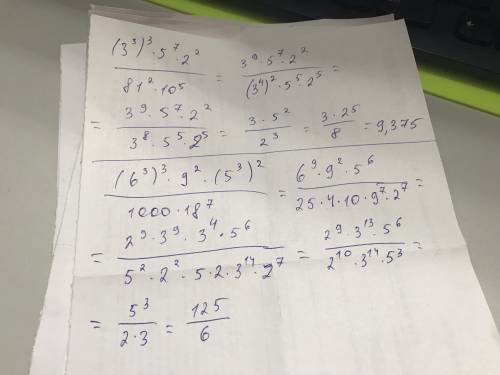 ((3³)³ · 5⁷ · 2²) / (81² · 10⁵) = (3⁹ · 5⁷ · 2²) / ((3⁴)² · 5⁵ · 2⁵) =
= (3⁹ · 5⁷ · 2²) / (3⁸ · 5⁵ · 2⁵) = (3 · 5²) / 2³ = (3 · 25) / 8 = 9,375
((6³)³ · 9² · (5³)²) / (1000 · 18⁷) = (6⁹ · 9² · 5⁶) / (25 · 4 · 10 · 9⁷ · 2⁷) =
= (2⁹ · 3⁹ · 3⁴ · 5⁶) / (5² · 2² · 5 · 2 · 3¹⁴ · 2⁷) = (2⁹ · 3¹³ · 5⁶) / (2¹⁰ · 3¹⁴ · 5³) =
= 5³ / (2 · 3) = 125 / 6